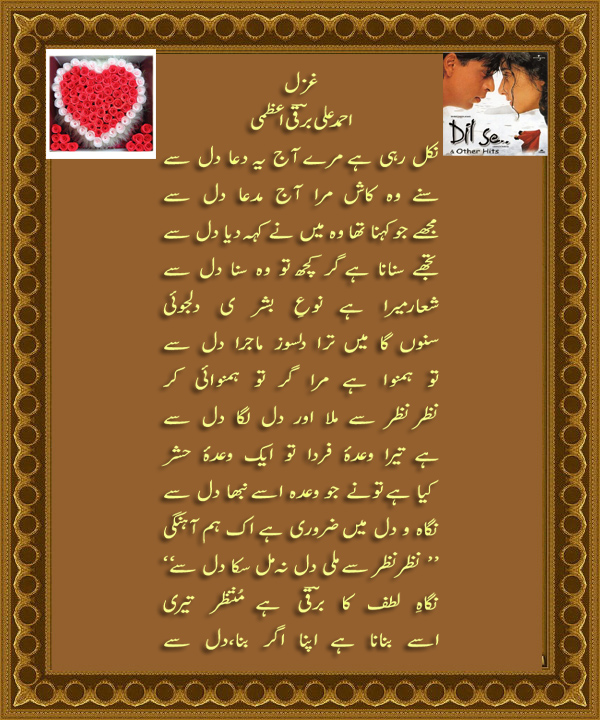 غزل
احمد علی برقیؔ اعظمی
Dil Se..
& Other Hits
نکل رہی ہے مرے آج یہ دعا دل سے
سنے وہ کاش مرا آج مدعا دل سے
مجھے جو کہنا تھا وہ میں نے کہہ دیا دل سے
تجھے سنانا ہے گر کچھ تو وہ سنا دل سے
شعار میرا ہے نوع بشر ی دلجوئی
سنوں گا میں ترا دلسوز ماجرا دل سے
تو ہمنوا ہے مرا گر تو ہمنوائی کر
نظر نظر سے ملا اور دل لگا دل سے
ہے تیرا وعدۂ فردا تو ایک وعدۂ حشر
کیا ہے تونے جو وعدہ اسے نبھا دل سے
نگاہ و دل میں ضروری ہے اک ہم آہنگی
’’ نظر نظر سے ملی دل نہ مل سکا دل سے‘‘
نگاہِ لطف کا برقیؔ ہے مُنتظر تیری
اسے بنانا ہے اپنا اگر بنا،دل سے